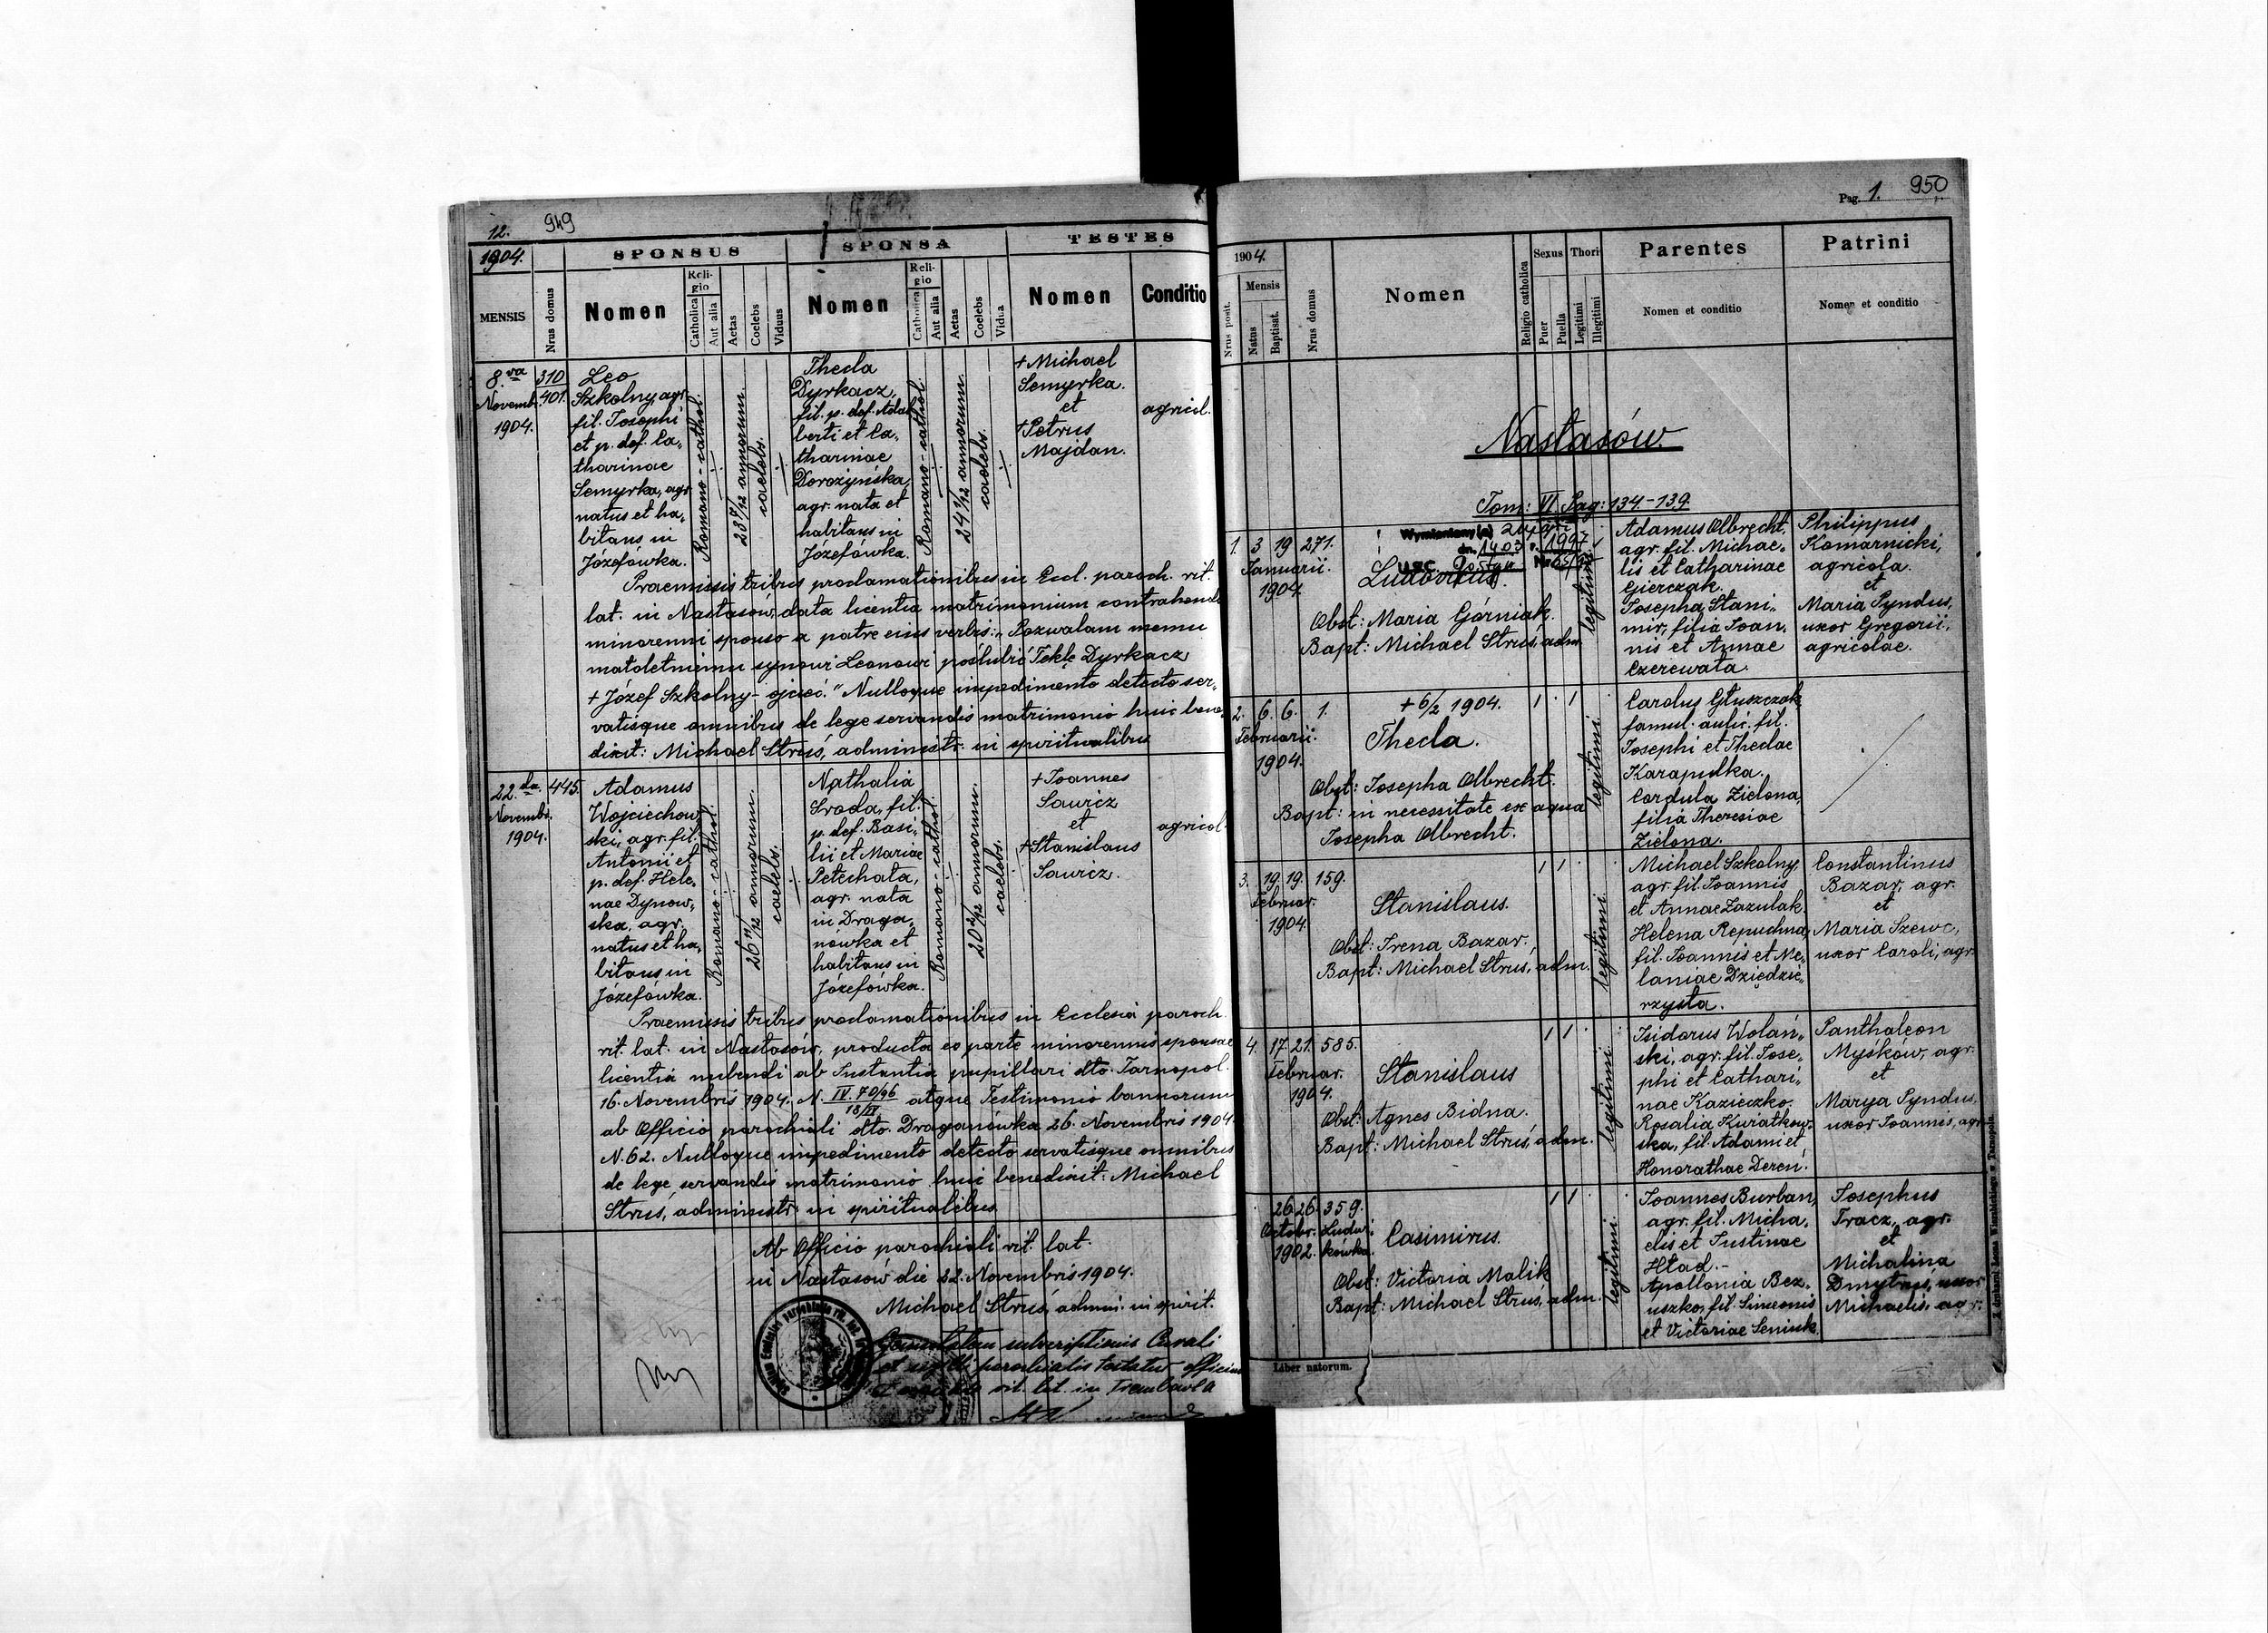 12.
949
1904.
SPONSUS
SPONSA
TESTES
MENSIS
Nrus domus
Nomen
Reli-
gio
Catholica
Aut alia
Aetas
Coelebs
Viduus
Nomen
Reli-
gio
Catholica
Aut alia
Aetas
Coelebs
Vidua
Nomen
Conditio
8.va
Novembr.
1904.
310
401.
Leo
Szkolny agr.
fil. Josephi
et p. def. Ca„
tharinae
Semyrka, agr.
natus et ha„
bitans in
Józefówka.
Romano-cathol.
annorum.
caelebs.
Thecla
Dyrkacz,
fil. p. def. Adal
berti et Ca„
tharinae
Dorożyńska,
agr. nata et
habitans in
Józefówka.
Romano-cathol.
annorum.
caelebs.
+ Michael
Semyrka.
et
+ Petrus
Majdan.
agricol.
Praemissis tribus proclamationibus in Eccl. paroch. rit.
lat. in Nastasów, data licentia matrimonium contrahendi
minorenni sponso a patre eius verbis: „Pozwalam memu
małoletniemu synowi Leonowi poślubić Teklę Dyrkacz
+ Józef Szkolny - ojciec." Nulloque impedimento detecto ser„
vatisque omnibus de lege servandis matrimonio huic bene„
dixit: Michael Struś, administr. in spiritualibus
22.da
Novembr.
1904.
445.
Adamus
Wojciechow„
ski, agr. fil.
Antonii et
p. def. Hele„
nae Dynow„
ska, agr.
natus et ha„
bitans in
Józefówka.
Romano-cathol.
annorum.
caelebs.
Nathalia
Sroda, fil.
p. def. Basi„
lii et Mariae
Petechata,
agr. nata
in Draga„
nówka et
habitans in
Józefówka.
Romano-cathol.
annorum.
caelebs.
+ Joannes
Sawicz
et
+ Stanislaus
Sawicz.
agricol.
Praemissis tribus proclamationibus in Ecclesia paroch.
rit. lat. in Nastasów, producta ex parte minorennis sponsae
licentia nubendi ab Instantia pupillari dto. Tarnopol.
16. Novembris 1904. N. IV. 70/96 atque Testimonio bannorum
18/IV
ab Officio parochiali dto. Draganówka 26. Novembris 1904.
N. 62. Nulloque impedimento detecto servatisque omnibus
de lege servandis matrimonio huic benedixit: Michael
Struś, administr. in spiritualibus
Ab Officio parochiali rit. lat.
in Nastasów die 22. Novembris 1904.
Michael Struś, admin. in spirit.
subscriptionis Curati
et sigilli parochialis testatur officium
rit. lat. in Trembowla
Pag. 1.
950
1904.
Nrus posit.
Mensis
Natus
Baptisat.
Nrus domus
Nomen
Religio catholica
Sexus
Puer
Puella
Thori
Legitimi
Illegitimi
Parentes
Nomen et conditio
Patrini
Nomen et conditio
Nastasów
Tom: VI Pag: 134-139.
Wymieniony(a)
dn. 1403 r. 1997
USC
1. 3 19 271.
Januarii.
1904.
Ludovicus.
Obst: Maria Górniak.
Bapt: Michael Struś, adm.
legitimi.
Adamus Olbrecht,
agr. fil. Michae„
lis et Catharinae
Gierczak.
Josepha Stani„
mir, filia Joan„
nis et Annae
Czerewata.
Philippus
Komarnicki,
agricola.
et
Maria Pyndus,
uxor Gregorii,
agricolae.
2. 6. 6. 1.
Februarii.
1904.
+ 6/2 1904.
Thecla.
Obst: Josepha Olbrecht.
Bapt: in necessitate ex aqua
Josepha Olbrecht.
legitimi.
Carolus Głuszczak
famul. aulic. fil.
Josephi et Theclae
Karapulka.
Cordula Zielona,
filia Theresiae
Zielona.
3. 19. 19. 159.
Februar.
1904.
Stanislaus.
Obst: Irena Bazar,
Bapt: Michael Struś, adm.
legitimi.
Michael Szkolny,
agr. fil. Joannis
et Annae Zazulak.
Helena Repuchna,
fil. Joannis et Me„
laniae Dziędzie„
rzysta.
Constantinus
Bazar, agr.
et
Maria Szewc,
uxor Caroli, agr.
4. 17. 21. 585.
Februar.
1904.
Stanislaus
Obst: Agnes Bidna.
Bapt: Michael Struś, adm.
legitimi.
Isidorus Wolań„
ski, agr. fil. Jose„
phi et Cathari„
nae Kazieczko.
Rosalia Kwiatkow„
ska, fil. Adami et
Honorathae Dereń.
Panthaleon
Myśków, agr.
et
Marya Pyndus,
uxor Joannis, agr.
26. 26. 359.
Octobr. Ludwi„
1902. kówka.
Casimirus.
Obst: Victoria Malik
Bapt: Michael Struś, adm.
legitimi.
Joannes Burban,
agr. fil. Micha„
elis et Justinae
Hład.-
Apollonia Bez„
uszko, fil. Simeonis
et Victoriae Seniuk.
Josephus
Tracz, agr.
et
Michalina
Dmytrus, uxor
Michaelis, agr.
Liber natorum.